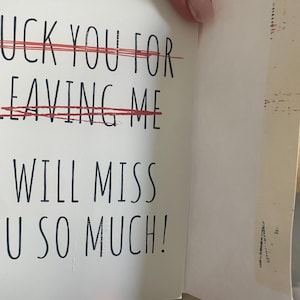 UCK YOU FOR
LEAVING ME
WILL MISS
U SO MUCH!